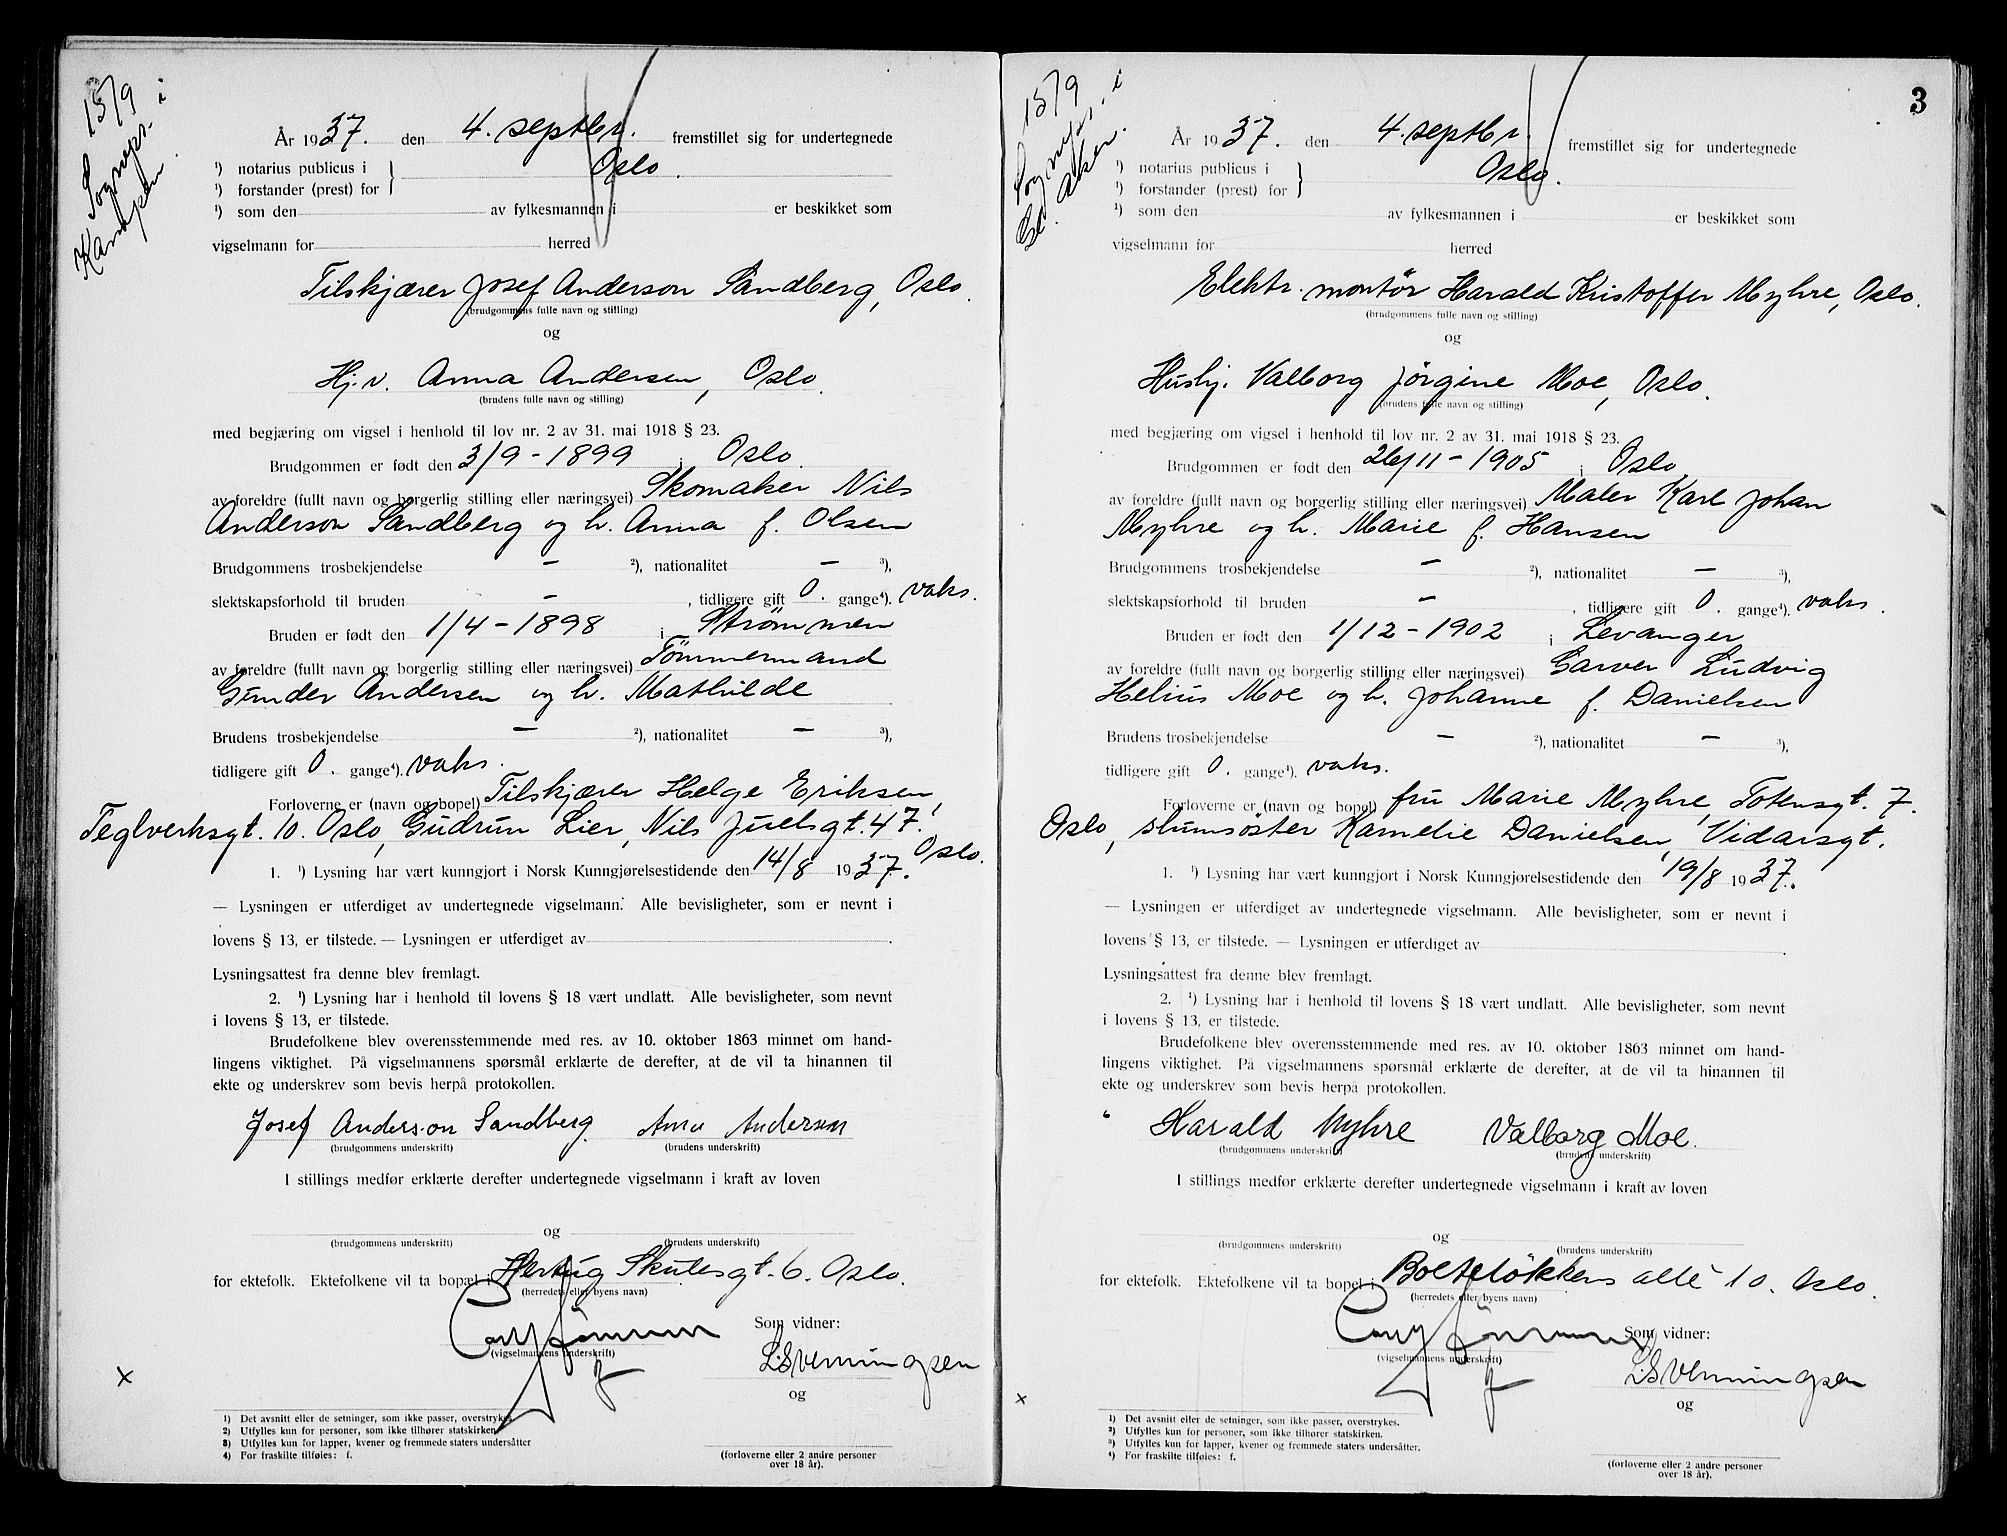 15/9
Sogneps. i
Kampen.
År 1937. den 4. septbr. fremstillet sig for undertegnede
¹) notarius publicus i
¹) forstander (prest) for } Oslo.
¹) som den av fylkesmannen i er beskikket som
vigselmann for herred
Tilskjærer Josef Anderson Sandberg, Oslo.
(brudgommens fulle navn og stilling)
og
Hj.v. Anna Andersen, Oslo.
(brudens fulle navn og stilling)
med begjæring om vigsel i henhold til lov nr. 2 av 31. mai 1918 § 23.
Brudgommen er født den 3/9 - 1899 i Oslo.
av foreldre (fullt navn og borgerlig stilling eller næringsvei) Skomaker Nils
Anderson Sandberg og h. Anna f. Olsen
Brudgommens trosbekjendelse – ²), nationalitet – ³),
slektskapsforhold til bruden – , tidligere gift 0. gange⁴). vaks.
Bruden er født den 1/4 - 1898 i Strömmen
av foreldre (fullt navn og borgerlig stilling eller næringsvei) Tömmermand
Gunder Andersen og h. Mathilde
Brudens trosbekjendelse – ²), nationalitet – ³),
tidligere gift 0. gange⁴). vaks.
Forloverne er (navn og bopel) Tilskjærer Helge Eriksen,
Teglverksgt. 10. Oslo, Gudrun Lier, Nils Juelsgt. 47.
Oslo.
1. ¹) Lysning har vært kunngjort i Norsk Kunngjørelsestidende den 14/8 1937.
— Lysningen er utferdiget av undertegnede vigselmann. Alle bevisligheter, som er nevnt i
lovens § 13, er tilstede. — Lysningen er utferdiget av
Lysningsattest fra denne blev fremlagt.
2. ¹) Lysning har i henhold til lovens § 18 vært undlatt. Alle bevisligheter, som nevnt
i lovens § 13, er tilstede.
Brudefolkene blev overensstemmende med res. av 10. oktober 1863 minnet om hand-
lingens viktighet. På vigselmannens spørsmål erklærte de derefter, at de vil ta hinannen til
ekte og underskrev som bevis herpå protokollen.
Josef Anderson Sandberg. Anna Andersen
(brudgommens underskrift) (brudens underskrift)
I stillings medfør erklærte derefter undertegnede vigselmann i kraft av loven
og
(brudgommens underskrift) (brudens underskrift)
for ektefolk. Ektefolkene vil ta bopæl i Hertug Skulesgt. 6. Oslo.
(herredets eller byens navn)
Som vidner:
(vigselmannens underskrift)
x
og
1) Det avsnitt eller de setninger, som ikke passer, overstrykes.
2) Utfylles kun for personer, som ikke tilhører statskirken.
3) Utfylles kun for lapper, kvener og fremmede staters undersåtter
4) For fraskilte tilføies: f.
(forloverne eller 2 andre personer
over 18 år).
3
15/9
Sogneps. i
Gl. Aker.
År 1937. den 4. septbr. fremstillet sig for undertegnede
¹) notarius publicus i
¹) forstander (prest) for } Oslo.
¹) som den av fylkesmannen i er beskikket som
vigselmann for herred
Elektr. montör Harald Kristoffer Myhre, Oslo.
(brudgommens fulle navn og stilling)
og
Hushj. Valborg Jörgine Moe, Oslo.
(brudens fulle navn og stilling)
med begjæring om vigsel i henhold til lov nr. 2 av 31. mai 1918 § 23.
Brudgommen er født den 26/11 - 1905 i Oslo.
av foreldre (fullt navn og borgerlig stilling eller næringsvei) Maler Karl Johan
Myhre og h. Marie f. Hansen
Brudgommens trosbekjendelse – ²), nationalitet – ³),
slektskapsforhold til bruden – , tidligere gift 0. gange⁴). vaks.
Bruden er født den 1/12 - 1902 i Levanger
av foreldre (fullt navn og borgerlig stilling eller næringsvei) Garver Ludvig
Helius Moe og h. Johanne f. Danielsen
Brudens trosbekjendelse – ²), nationalitet – ³),
tidligere gift 0. gange⁴). vaks.
Forloverne er (navn og bopel) fru Marie Myhre, Totensgt. 7.
Oslo, slumsöster Kamelie Danielsen, Vidarsgt.
1. ¹) Lysning har vært kunngjort i Norsk Kunngjørelsestidende den 19/8 1937.
— Lysningen er utferdiget av undertegnede vigselmann. Alle bevisligheter, som er nevnt i
lovens § 13, er tilstede. — Lysningen er utferdiget av
Lysningsattest fra denne blev fremlagt.
2. ¹) Lysning har i henhold til lovens § 18 vært undlatt. Alle bevisligheter, som nevnt
i lovens § 13, er tilstede.
Brudefolkene blev overensstemmende med res. av 10. oktober 1863 minnet om hand-
lingens viktighet. På vigselmannens spørsmål erklærte de derefter, at de vil ta hinannen til
ekte og underskrev som bevis herpå protokollen.
Harald Myhre Valborg Moe.
(brudgommens underskrift) (brudens underskrift)
I stillings medfør erklærte derefter undertegnede vigselmann i kraft av loven
og
(brudgommens underskrift) (brudens underskrift)
for ektefolk. Ektefolkene vil ta bopel i Bolteløkkens alle 10. Oslo.
(herredets eller byens navn)
Som vidner:
(vigselmannens underskrift)
x
og
¹) Det avsnitt eller de setninger, som ikke passer, overstrykes.
²) Utfylles kun for personer, som ikke tilhører statskirken.
³) Utfylles kun for lapper, kvener og fremmede staters undersåtter.
⁴) For fraskilte tilføies: f.
(forloverne eller 2 andre personer
over 18 år).